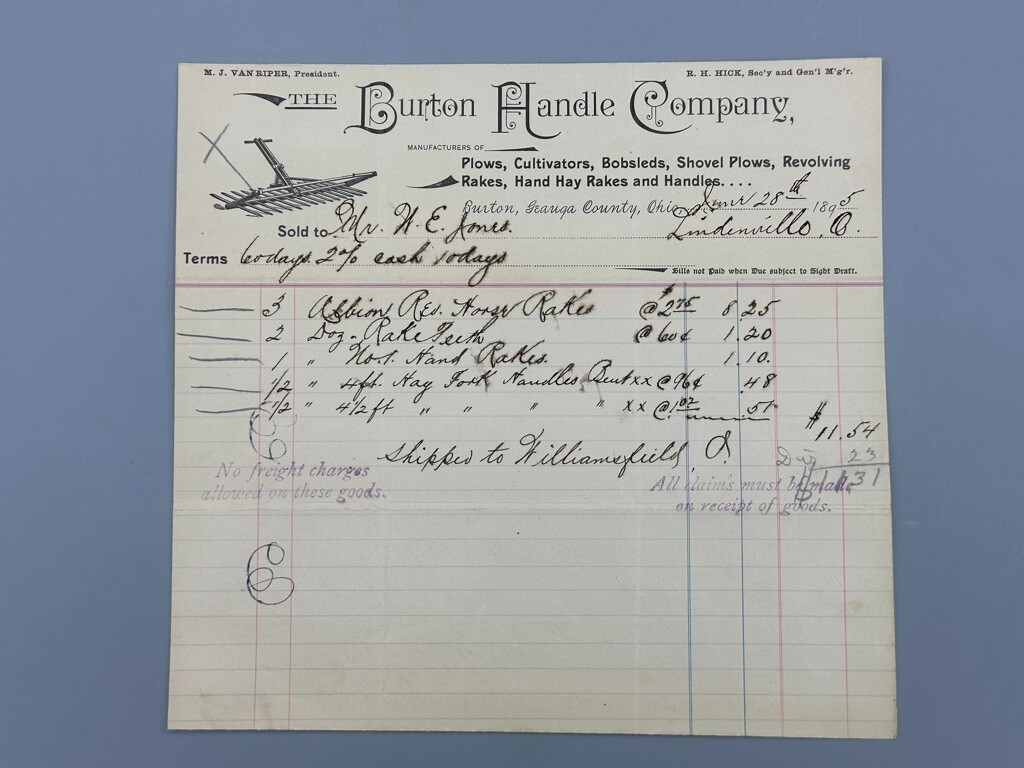 M. J. VAN RIPER, President.
R. H. HICK, Sec'y and Gen'l M'g'r.
THE Burton Handle Company,
MANUFACTURERS OF
Plows, Cultivators, Bobsleds, Shovel Plows, Revolving
Rakes, Hand Hay Rakes and Handles....
Burton, Geauga County, Ohio, June 28th 1895
Sold to Mr. W. E. Jones. Lindenville, O.
Terms 60 days. 2% cash 10 days
Bills not Paid when Due subject to Sight Draft.
3 Albion Rev. Horse Rakes @ $2 75 8.25
2 Doz. Rake Teeth @ 60¢ 1.20
1 " No. 1. Hand Rakes. 1.10.
1/2 " 4ft. Hay Fork Handles, Bent xx @ 96¢ .48
1/2 " 4 1/2 ft " " " " xx @ 1 02 .51
$ 11.54
Shipped to Williamsfield, O.
23
11.31
No freight charges
allowed on these goods.
All claims must be made
on receipt of goods.